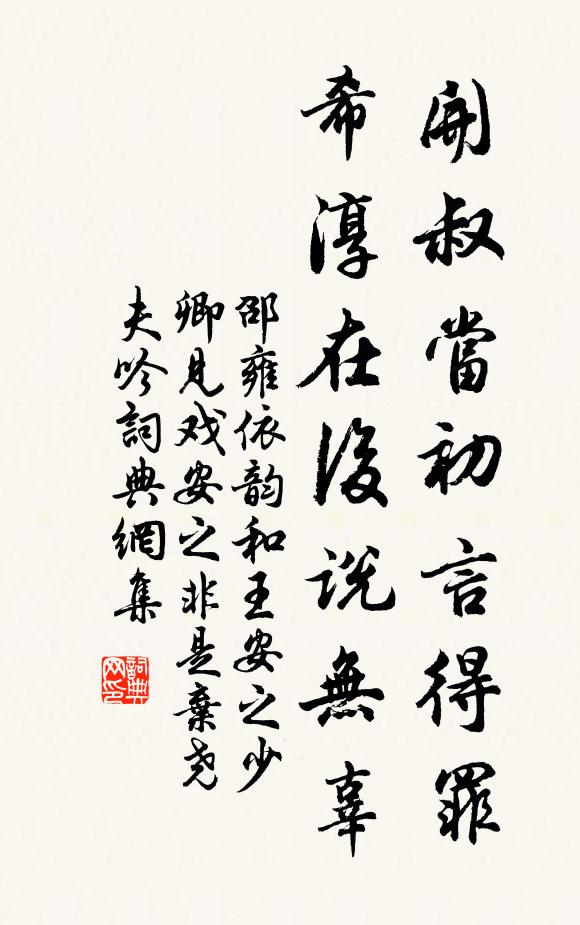 開叔當初言得罪
希淳在後説無辜
邵雍依韵和王安之少
卿見戏安之非是棄尧
夫吟詞典網集
詞典
网印